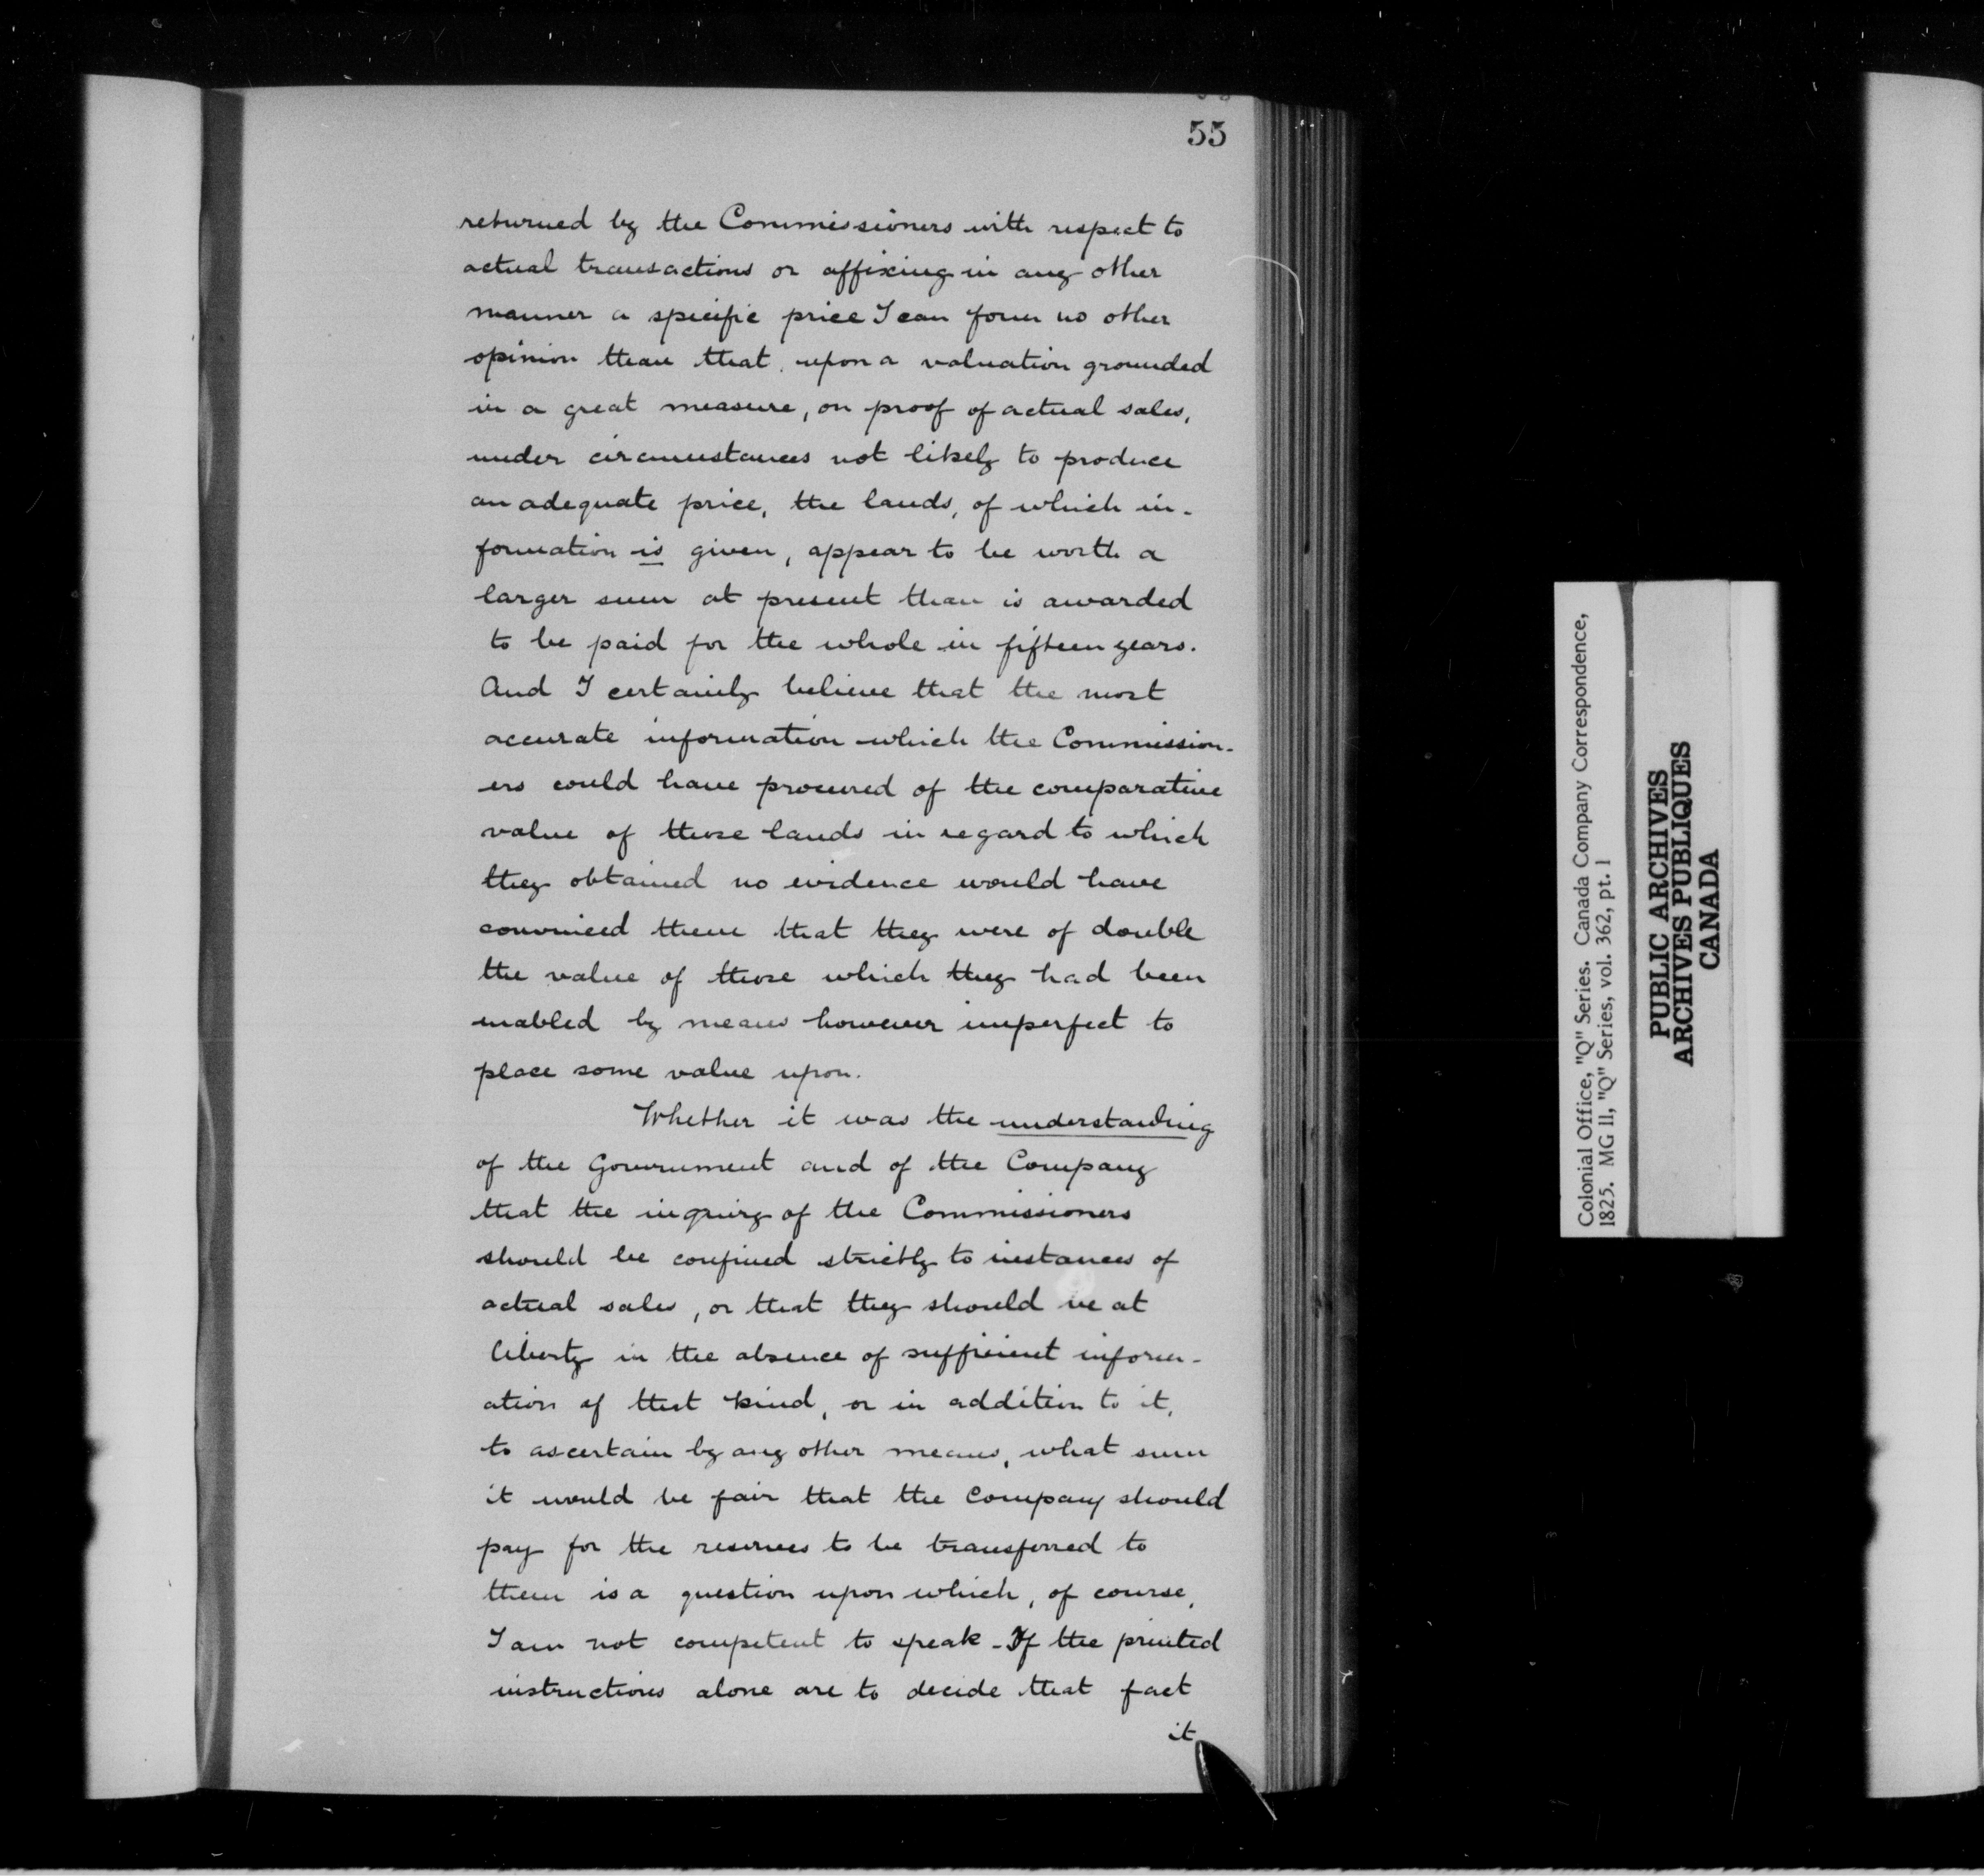 55
returned by the Commissioners with respect to
actual transactions or affixing in any other
manner a specific price I can form no other
opinion than that upon a valuation grounded
in a great measure, on proof of actual sales,
under circumstances not likely to produce
an adequate price, the lands, of which in-
formation is given, appear to be worth a
larger sum at present than is awarded
to be paid for the whole in fifteen years.
And I certainly believe that the most
accurate information which the Commission-
ers could have procured of the comparative
value of those lands in regard to which
they obtained no evidence would have
convinced them that they were of double
the value of those which they had been
enabled by means however imperfect to
place some value upon.
Whether it was the understanding
of the Government and of the Company
that the inquiry of the Commissioners
should be confined strictly to instances of
actual sales, or that they should be at
liberty in the absence of sufficient inform-
ation of that kind, or in addition to it,
to ascertain by any other means, what sum
it would be fair that the Company should
pay for the reserves to be transferred to
them is a question upon which, of course,
I am not competent to speak - If the printed
instructions alone are to decide that fact
it
Colonial Office, "Q" Series. Canada Company Correspondence,
1825. MG 11, "Q" Series, vol. 362, pt. 1
PUBLIC ARCHIVES
ARCHIVES PUBLIQUES
CANADA